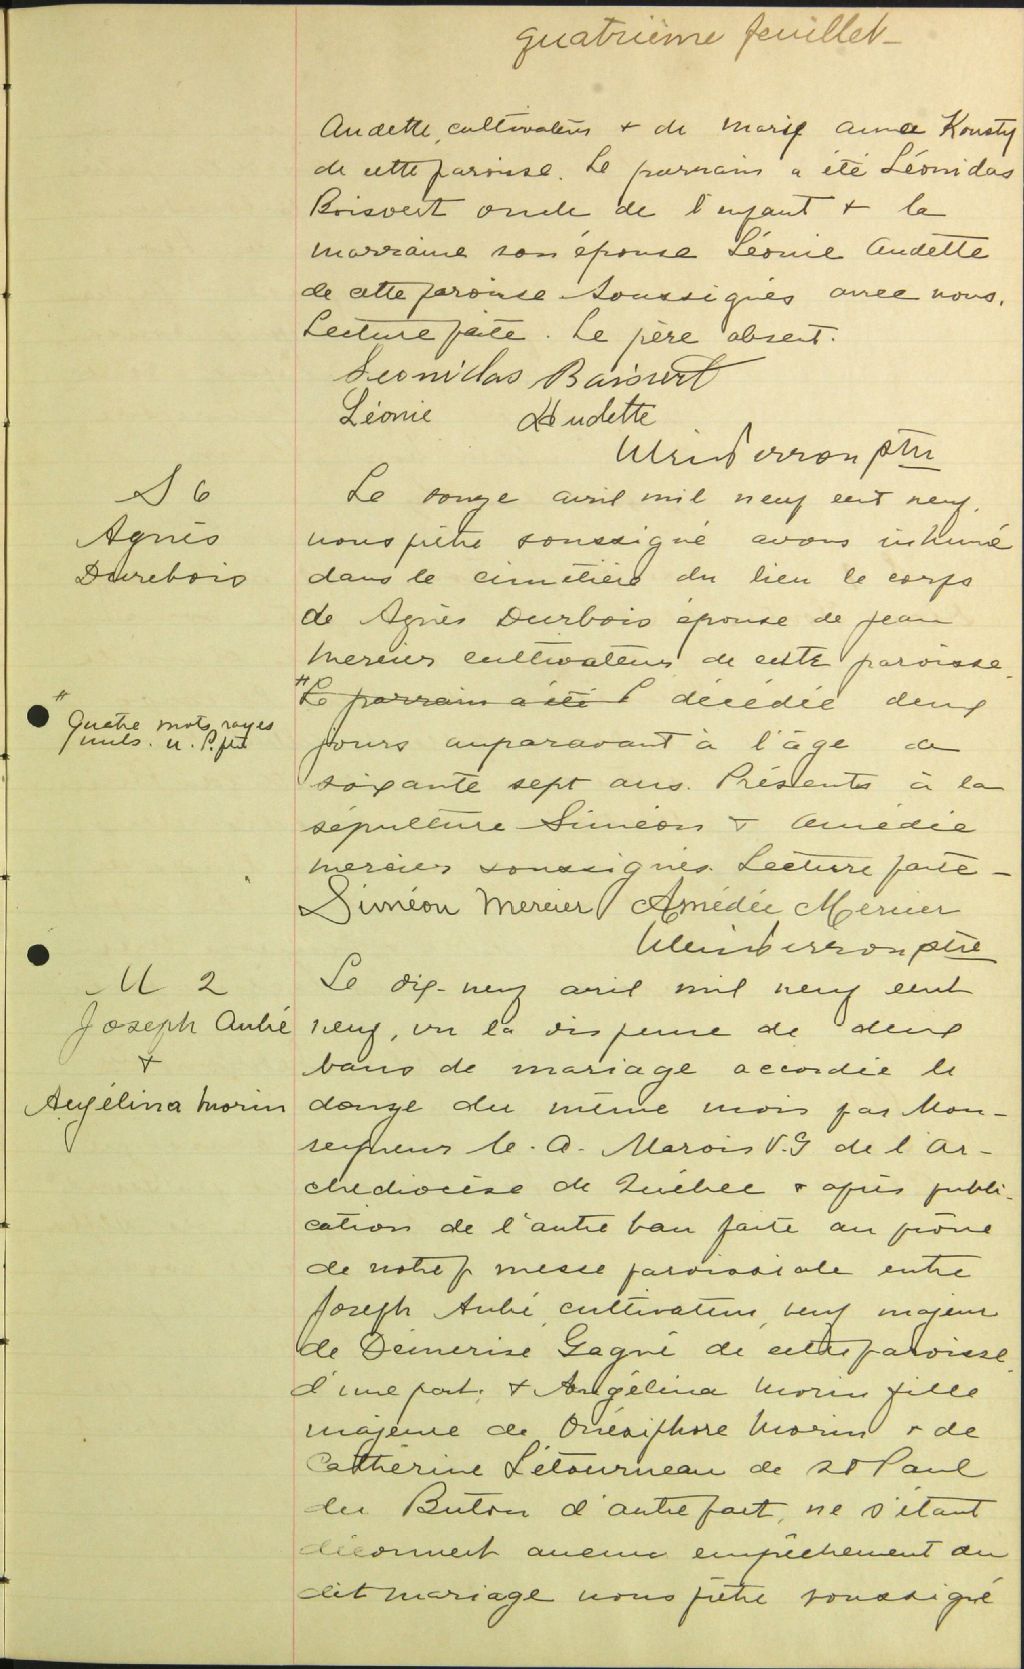 quatrième feuillet -
Audette, cultivateur + de Marie Anna
de cette paroisse. Le parrain a été Léonidas
Boisvert oncle de l'enfant + la
marraine son épouse Léonie Audette
de cette paroisse soussignés avec nous.
Lecture faite. Le père absent.
Leonidas Boisvert
Léonie Audette
ptre
S 6
Agnès
Durebois
Le onze avril mil neuf cent neuf,
nous prêtre soussigné avons inhumé
dans le cimetière du lieu le corps
de Agnès Durbois épouse de Jean
Mercier cultivateur de cette paroisse.
# Le parrain a été décédée deux
# Quatre mots rayés
nuls. u. P. ptre
jours auparavant à l'âge de
soixante sept ans. Présents à la
sépulture Siméon + Amédée
Mercier soussignés. Lecture faite -
Siméon Mercier Amédée Mercier
ptre
M 2
Joseph Aubé
+
Angélina Morin
Le dix-neuf avril mil neuf cent
neuf, vu la dispense de deux
bans de mariage accordée le
douze du même mois par Mon-
seigneur C. A. Marois V.G de l'Ar-
chediocèse de Québec + après publi-
cation de l'autre ban faite au prône
de notre messe paroissiale entre
Joseph Aubé, cultivateur, veuf majeur
de Démerise Gagné de cette paroisse
d'une part, + Angélina Morin fille
majeure de Onésiphore Morin + de
Catherine Létourneau de St Paul
du Buton d'autre part, ne s'étant
découvert aucun empêchement au
dit mariage nous prêtre soussigné